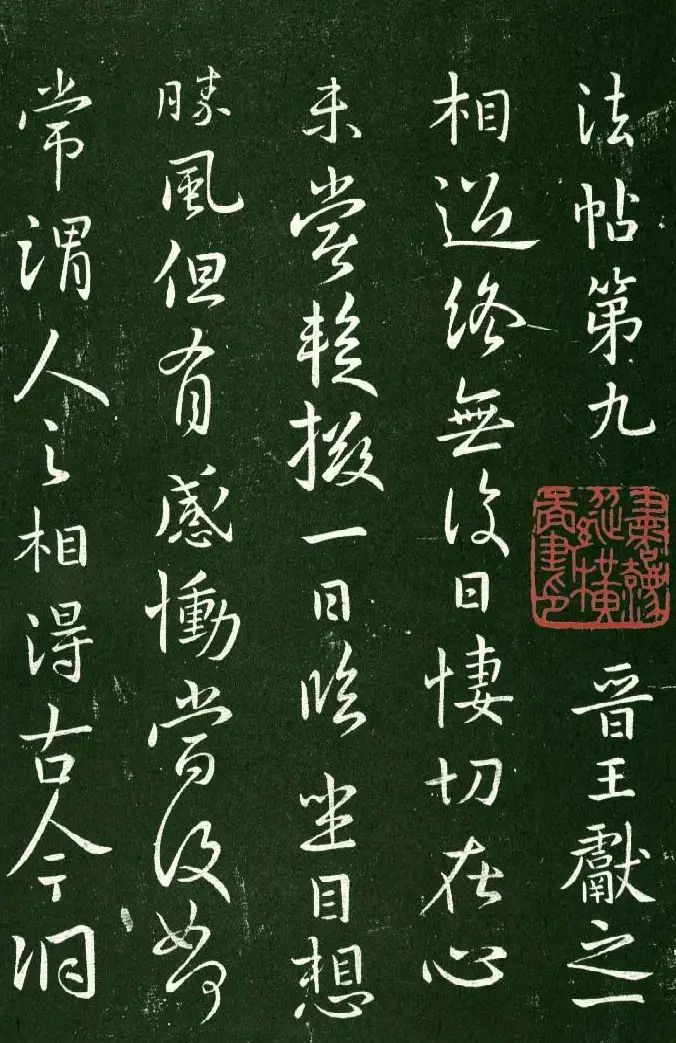 法帖第九 晉王獻之一
相過終無復日悽切在心
未嘗暫掇一日臨坐目想
勝風但有感慟當復如何
常謂人之相得古今洞